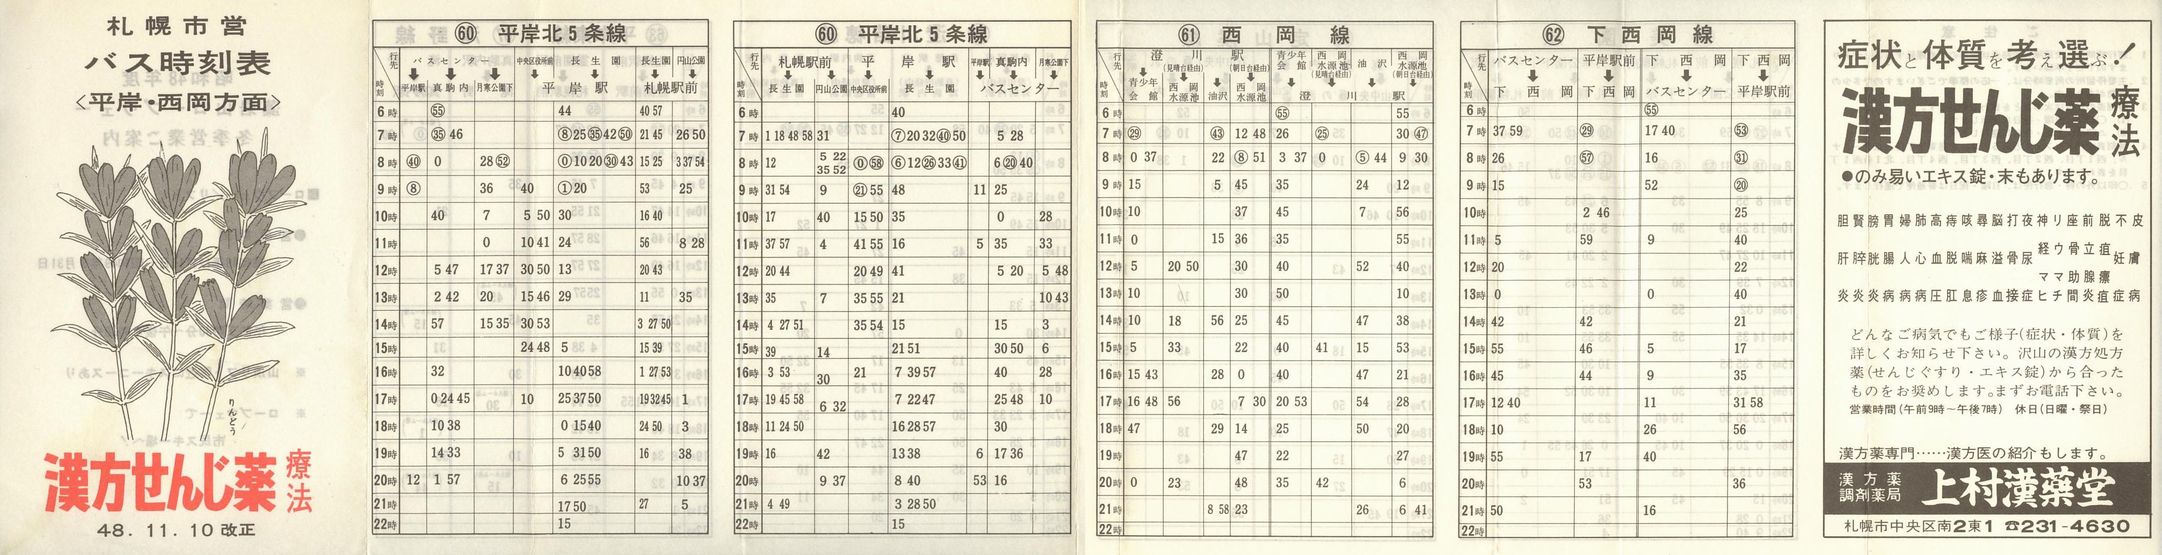 札幌市営
バス時刻表
<平岸・西岡方面>
りんどう
漢方せんじ薬 療法
48. 11. 10 改正
⑥⓪ 平岸北5条線
行先 時刻
バスセンター 中央区役所前 長生園 長生園 円山公園
平岸駅 真駒内 月寒公園下 平岸駅 札幌駅前
6時 ㊺ 44 40 57
7時 ㉟ 46 ⑧ 25 ㉟ 42 ㊿ 21 45 26 50
8時 ㊵ 0 28 52 ⓪ 10 20 ㉚ 43 15 25 3 37 54
9時 ⑧ 36 40 ① 20 53 25
10時 40 7 5 50 30 16 40
11時 0 10 41 24 56 8 28
12時 5 47 17 37 30 50 13 20 43
13時 2 42 20 15 46 29 11 35
14時 57 15 35 30 53 3 27 50
15時 24 48 5 15 39
16時 32 10 40 58 1 27 53
17時 0 24 45 10 25 37 50 19 32 45 1
18時 10 38 0 15 40 24 50 3
19時 14 33 5 31 50 16 38
20時 12 1 57 6 25 55 10 37
21時 17 50 27 5
22時 15
⑥⓪ 平岸北5条線
行先 時刻
札幌駅前 平岸駅 平岸駅 真駒内 月寒公園下
長生園 円山公園 中央区役所前 長生園 バスセンター
6時 40
7時 1 18 48 58 31 ⑦ 20 32 ㊵ 50 5 28
8時 12 5 22 35 52 ⓪ 58 ⑥ 12 ㉖ 33 ㊶ 6 ⑳ 40
9時 31 54 9 ㉑ 55 48 11 25
10時 17 40 15 50 35 0 28
11時 37 57 4 41 55 16 5 35 33
12時 20 44 20 49 41 5 20 5 48
13時 35 7 35 55 21 10 43
14時 4 27 51 35 54 15 15 3
15時 39 14 21 51 30 50 6
16時 3 53 30 21 7 39 57 40 28
17時 19 45 58 6 32 7 22 47 25 48 10
18時 11 24 50 16 28 57 30
19時 16 42 13 38 6 17 36
20時 9 37 8 40 53 16
21時 4 49 3 28 50
22時 15
㉛ 西岡線
行先 時刻
澄川駅 (見晴台経由) (朝日台経由) 青少年会館 西岡水源池 (見晴台経由) 油沢 西岡水源池 (朝日台経由)
青少年会館 西岡水源池 油沢 西岡水源池 澄川駅
6時 55 55
7時 ㉙ ㊸ 12 48 26 ㉕ 30 ㊼
8時 0 37 22 ⑧ 51 3 37 0 ⑤ 44 9 30
9時 15 5 45 35 24 12
10時 10 37 45 7 56
11時 0 15 36 35 55
12時 5 20 50 30 40 52 40
13時 10 30 50 10
14時 10 18 56 25 45 47 38
15時 5 33 22 40 41 15 53
16時 15 43 28 0 40 47 21
17時 16 48 56 7 30 20 53 54 28
18時 47 29 14 25 50 20
19時 47 22 27
20時 0 23 48 35 42 6
21時 8 58 23 26 6 41
22時
62 下西岡線
行先 時刻
バスセンター 平岸駅前 下西岡 下西岡
下西岡 下西岡 バスセンター 平岸駅前
6時 55
7時 37 59 ㉙ 17 40 53
8時 26 57 16 ㉛
9時 15 52 ⑳
10時 2 46 25
11時 5 59 9 40
12時 20 22
13時 0 0 40
14時 42 42 21
15時 55 46 5 17
16時 45 44 9 35
17時 12 40 11 31 58
18時 10 26 56
19時 55 17 40
20時 53 36
21時 50 16
22時
症状と体質を考え選ぶ!
漢方せんじ薬 療法
●のみ易いエキス錠・末もあります。
胆腎膀胃婦肺高痔咳尋脳打夜神リ座前脱不皮
肝膵胱腸人心血脱喘麻溢骨尿経ウ骨立疽妊膚
ママ助腺瘰
炎炎炎病病病圧肛息疹血接症ヒチ間炎疽症病
どんなご病気でもご様子(症状・体質)を
詳しくお知らせ下さい。沢山の漢方処方
薬(せんじぐすり・エキス錠)から合った
ものをお奨めします。まずお電話下さい。
営業時間(午前9時〜午後7時) 休日(日曜・祭日)
漢方薬専門……漢方医の紹介もします。
漢方薬調剤薬局 上村漢薬堂
札幌市中央区南2東1 ☎231-4630